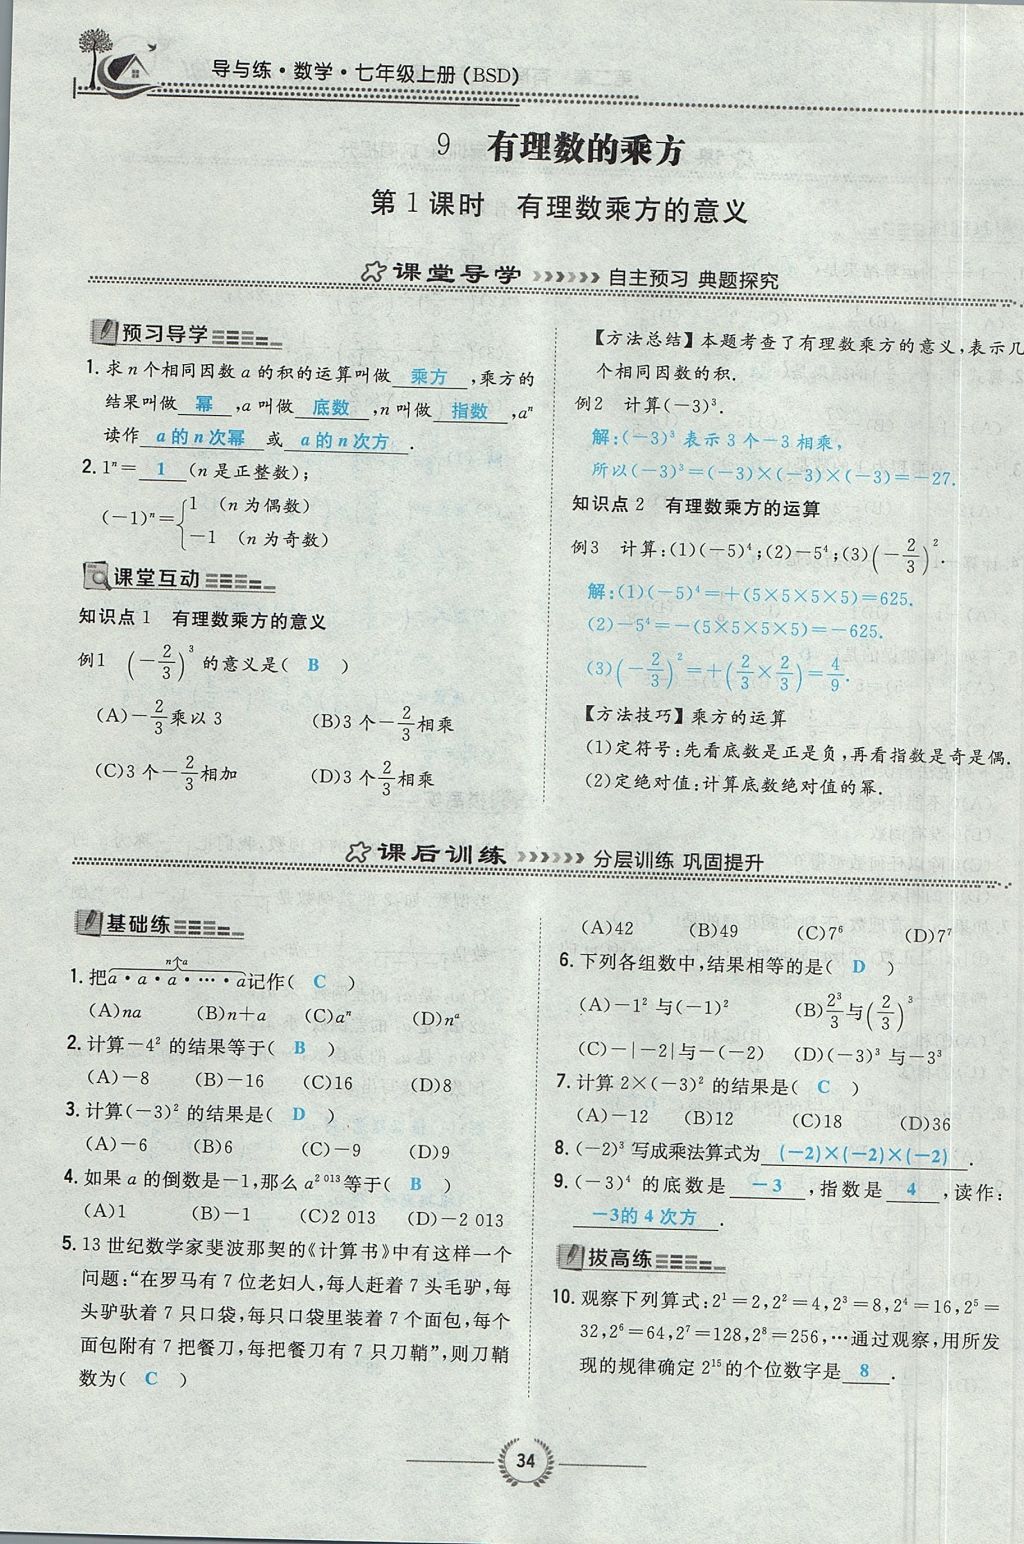 导与练·数学·七年级上册(BSD)
9 有理数的乘方
第1课时 有理数乘方的意义
课堂导学 自主预习 典题探究
预习导学
1. 求n个相同因数a的积的运算叫做 乘方 ,乘方的
结果叫做 幂 ,a叫做 底数 ,n叫做 指数 ,aⁿ
读作 a的n次幂 或 a的n次方 .
2. 1ⁿ= 1 (n是正整数);
(-1)ⁿ={1 (n为偶数)
-1 (n为奇数)
课堂互动
知识点1 有理数乘方的意义
例1 (-2/3)³的意义是( B )
(A)-2/3乘以3 (B)3个-2/3相乘
(C)3个-2/3相加 (D)3个2/3相乘
【方法总结】本题考查了有理数乘方的意义,表示几
个相同因数的积.
例2 计算(-3)³.
解:(-3)³表示3个-3相乘,
所以(-3)³=(-3)×(-3)×(-3)=-27.
知识点2 有理数乘方的运算
例3 计算:(1)(-5)⁴;(2)-5⁴;(3)(-2/3)².
解:(1)(-5)⁴=+(5×5×5×5)=625.
(2)-5⁴=-(5×5×5×5)=-625.
(3)(-2/3)²=+(2/3×2/3)=4/9.
【方法技巧】乘方的运算
(1)定符号:先看底数是正是负,再看指数是奇是偶.
(2)定绝对值:计算底数绝对值的幂.
课后训练 分层训练 巩固提升
基础练
n个a
1. 把a·a·a·…·a记作( C )
(A)na (B)n+a (C)aⁿ (D)nᵃ
2. 计算-4²的结果等于( B )
(A)-8 (B)-16 (C)16 (D)8
3. 计算(-3)²的结果是( D )
(A)-6 (B)6 (C)-9 (D)9
4. 如果a的倒数是-1,那么a²⁰¹³等于( B )
(A)1 (B)-1 (C)2 013 (D)-2 013
5. 13世纪数学家斐波那契的《计算书》中有这样一个
问题:“在罗马有7位老妇人,每人赶着7头毛驴,每
头驴驮着7只口袋,每只口袋里装着7个面包,每个
面包附有7把餐刀,每把餐刀有7只刀鞘”,则刀鞘
数为( C )
(A)42 (B)49 (C)7⁶ (D)7⁷
6. 下列各组数中,结果相等的是( D )
(A)-1²与(-1)² (B)2³/3与(2/3)³
(C)-|-2|与-(-2) (D)(-3)³与-3³
7. 计算2×(-3)²的结果是( C )
(A)-12 (B)12 (C)18 (D)36
8. (-2)³写成乘法算式为 (-2)×(-2)×(-2) .
9. (-3)⁴的底数是 -3 ,指数是 4 ,读作:
-3的4次方 .
拔高练
10. 观察下列算式:2¹=2,2²=4,2³=8,2⁴=16,2⁵=
32,2⁶=64,2⁷=128,2⁸=256,…通过观察,用所发
现的规律确定2¹⁵的个位数字是 8 .
34